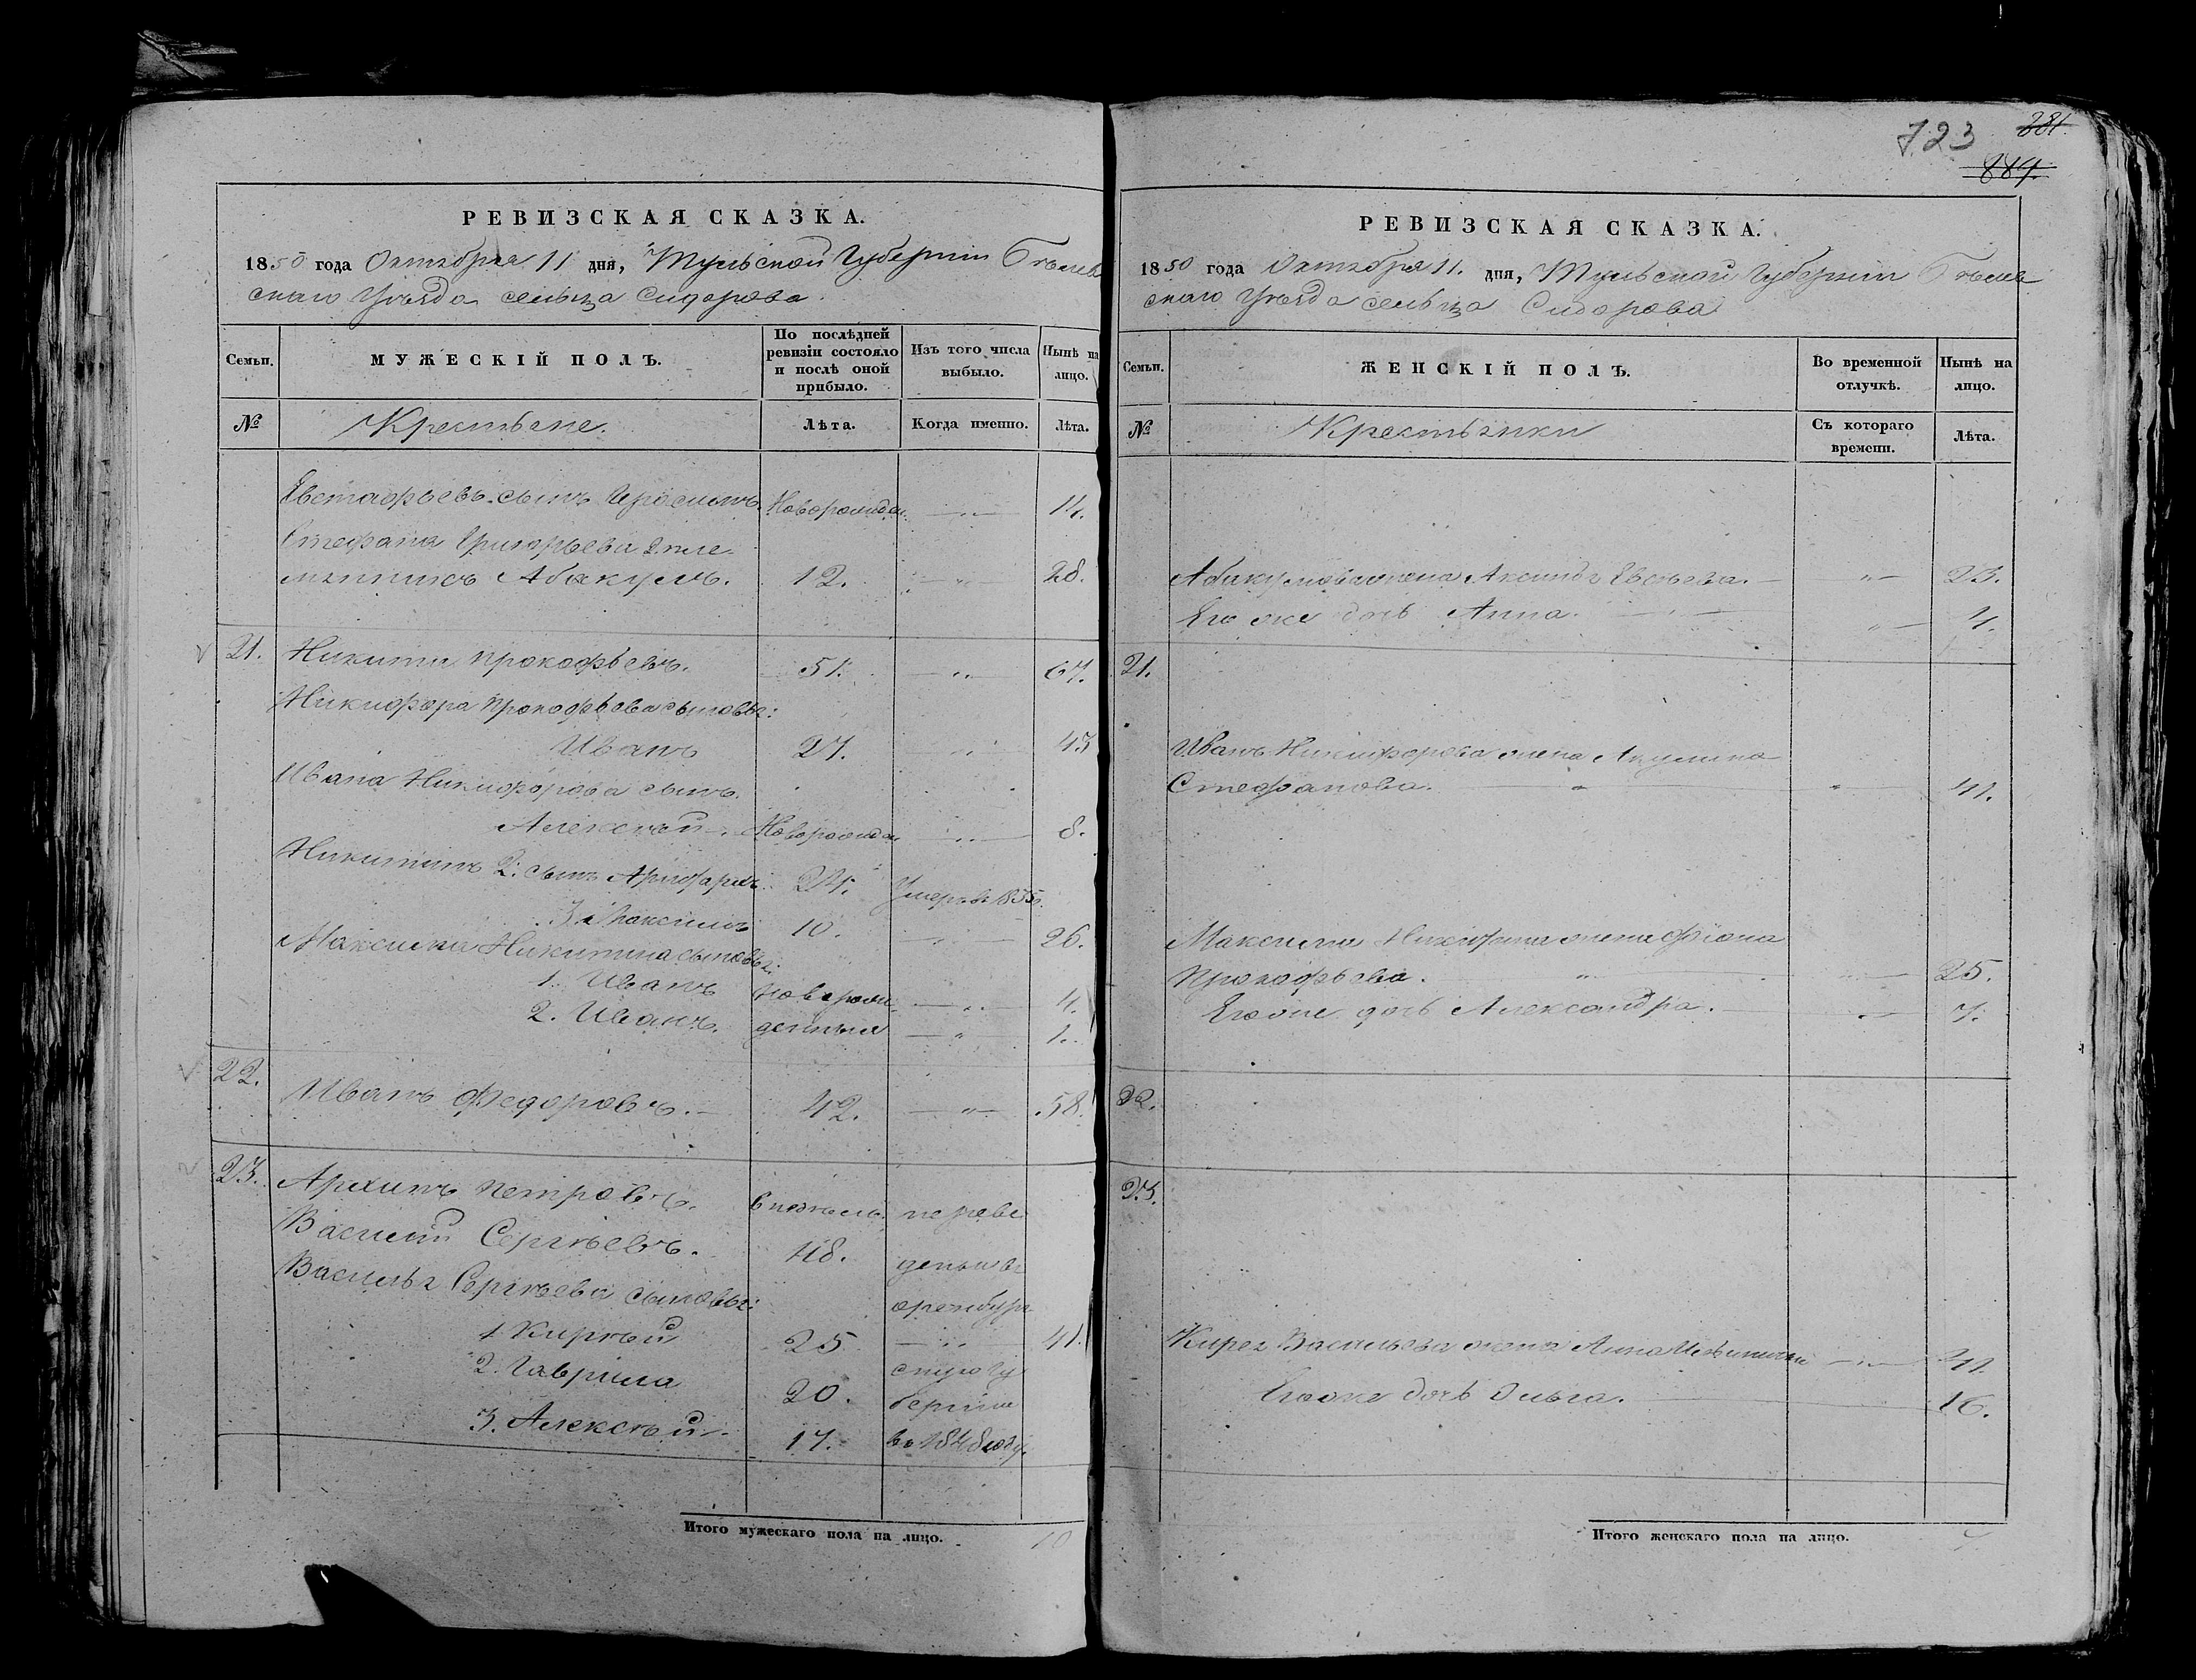 723
881.
889.
РЕВИЗСКАЯ СКАЗКА.
1850 года Октября 11 дня, Тульской Губернии Бѣлев
скаго Уѣзда сельца Сидорова.
Семьи.
МУЖЕСКІЙ ПОЛЪ.
По послѣдней ревизіи состояло и послѣ оной прибыло.
Изъ того числа выбыло.
Нынѣ на лицо.
№
Крестьяне.
Лѣта.
Когда именно.
Лѣта.
Евстафьевъ сынъ Новорожден. 14.
Стефана Григорьева 2 пле
мянникъ Абакумъ. 12. 28.
21. Никита Прокофьевъ. 51. 67.
Никифора Прокофьева сыновья:
Иванъ 27. 43
Ивана Никифорова сынъ
Алексѣй. Новорожден 8.
Никитинъ 2. сынъ 24. Умеръ въ 1835.
3. Максимъ 10. 26.
Максима Никитина сыновья:
1. Иванъ Новорож 4.
2. Иванъ. денныя 1.
22. Иванъ Федоровъ. 42. 58.
23. Архипъ Петровъ. переве
Василій Сергѣевъ. 48. дены въ
Василья Сергѣева сыновья: оренбург
1 Кирѣй 25 41.
2. Гаврила 20. скую гу
бернію
3. Алексѣй. 17. въ 1848 году.
Итого мужескаго пола на лицо. 10
РЕВИЗСКАЯ СКАЗКА.
1850 года Октября 11. дня, Тульской Губернии Бѣлев
скаго Уѣзда сельца Сидорова
Семьи.
ЖЕНСКІЙ ПОЛЪ.
Во временной отлучкѣ.
Нынѣ на лицо.
№
Крестьянки
Съ котораго времени.
Лѣта.
Абакумова жена Аксинья Евсѣева. 23.
Его же дочь Анна. 4.
21.
Ивана Никифорова жена Акулина
Стефанова. 41.
Максима жена
Прокофьева. 25.
Его же дочь Александра. 7.
22.
23.
Кирея Васильева жена Анна 41.
Его же дочь Ольга. 16.
Итого женскаго пола на лицо. 7